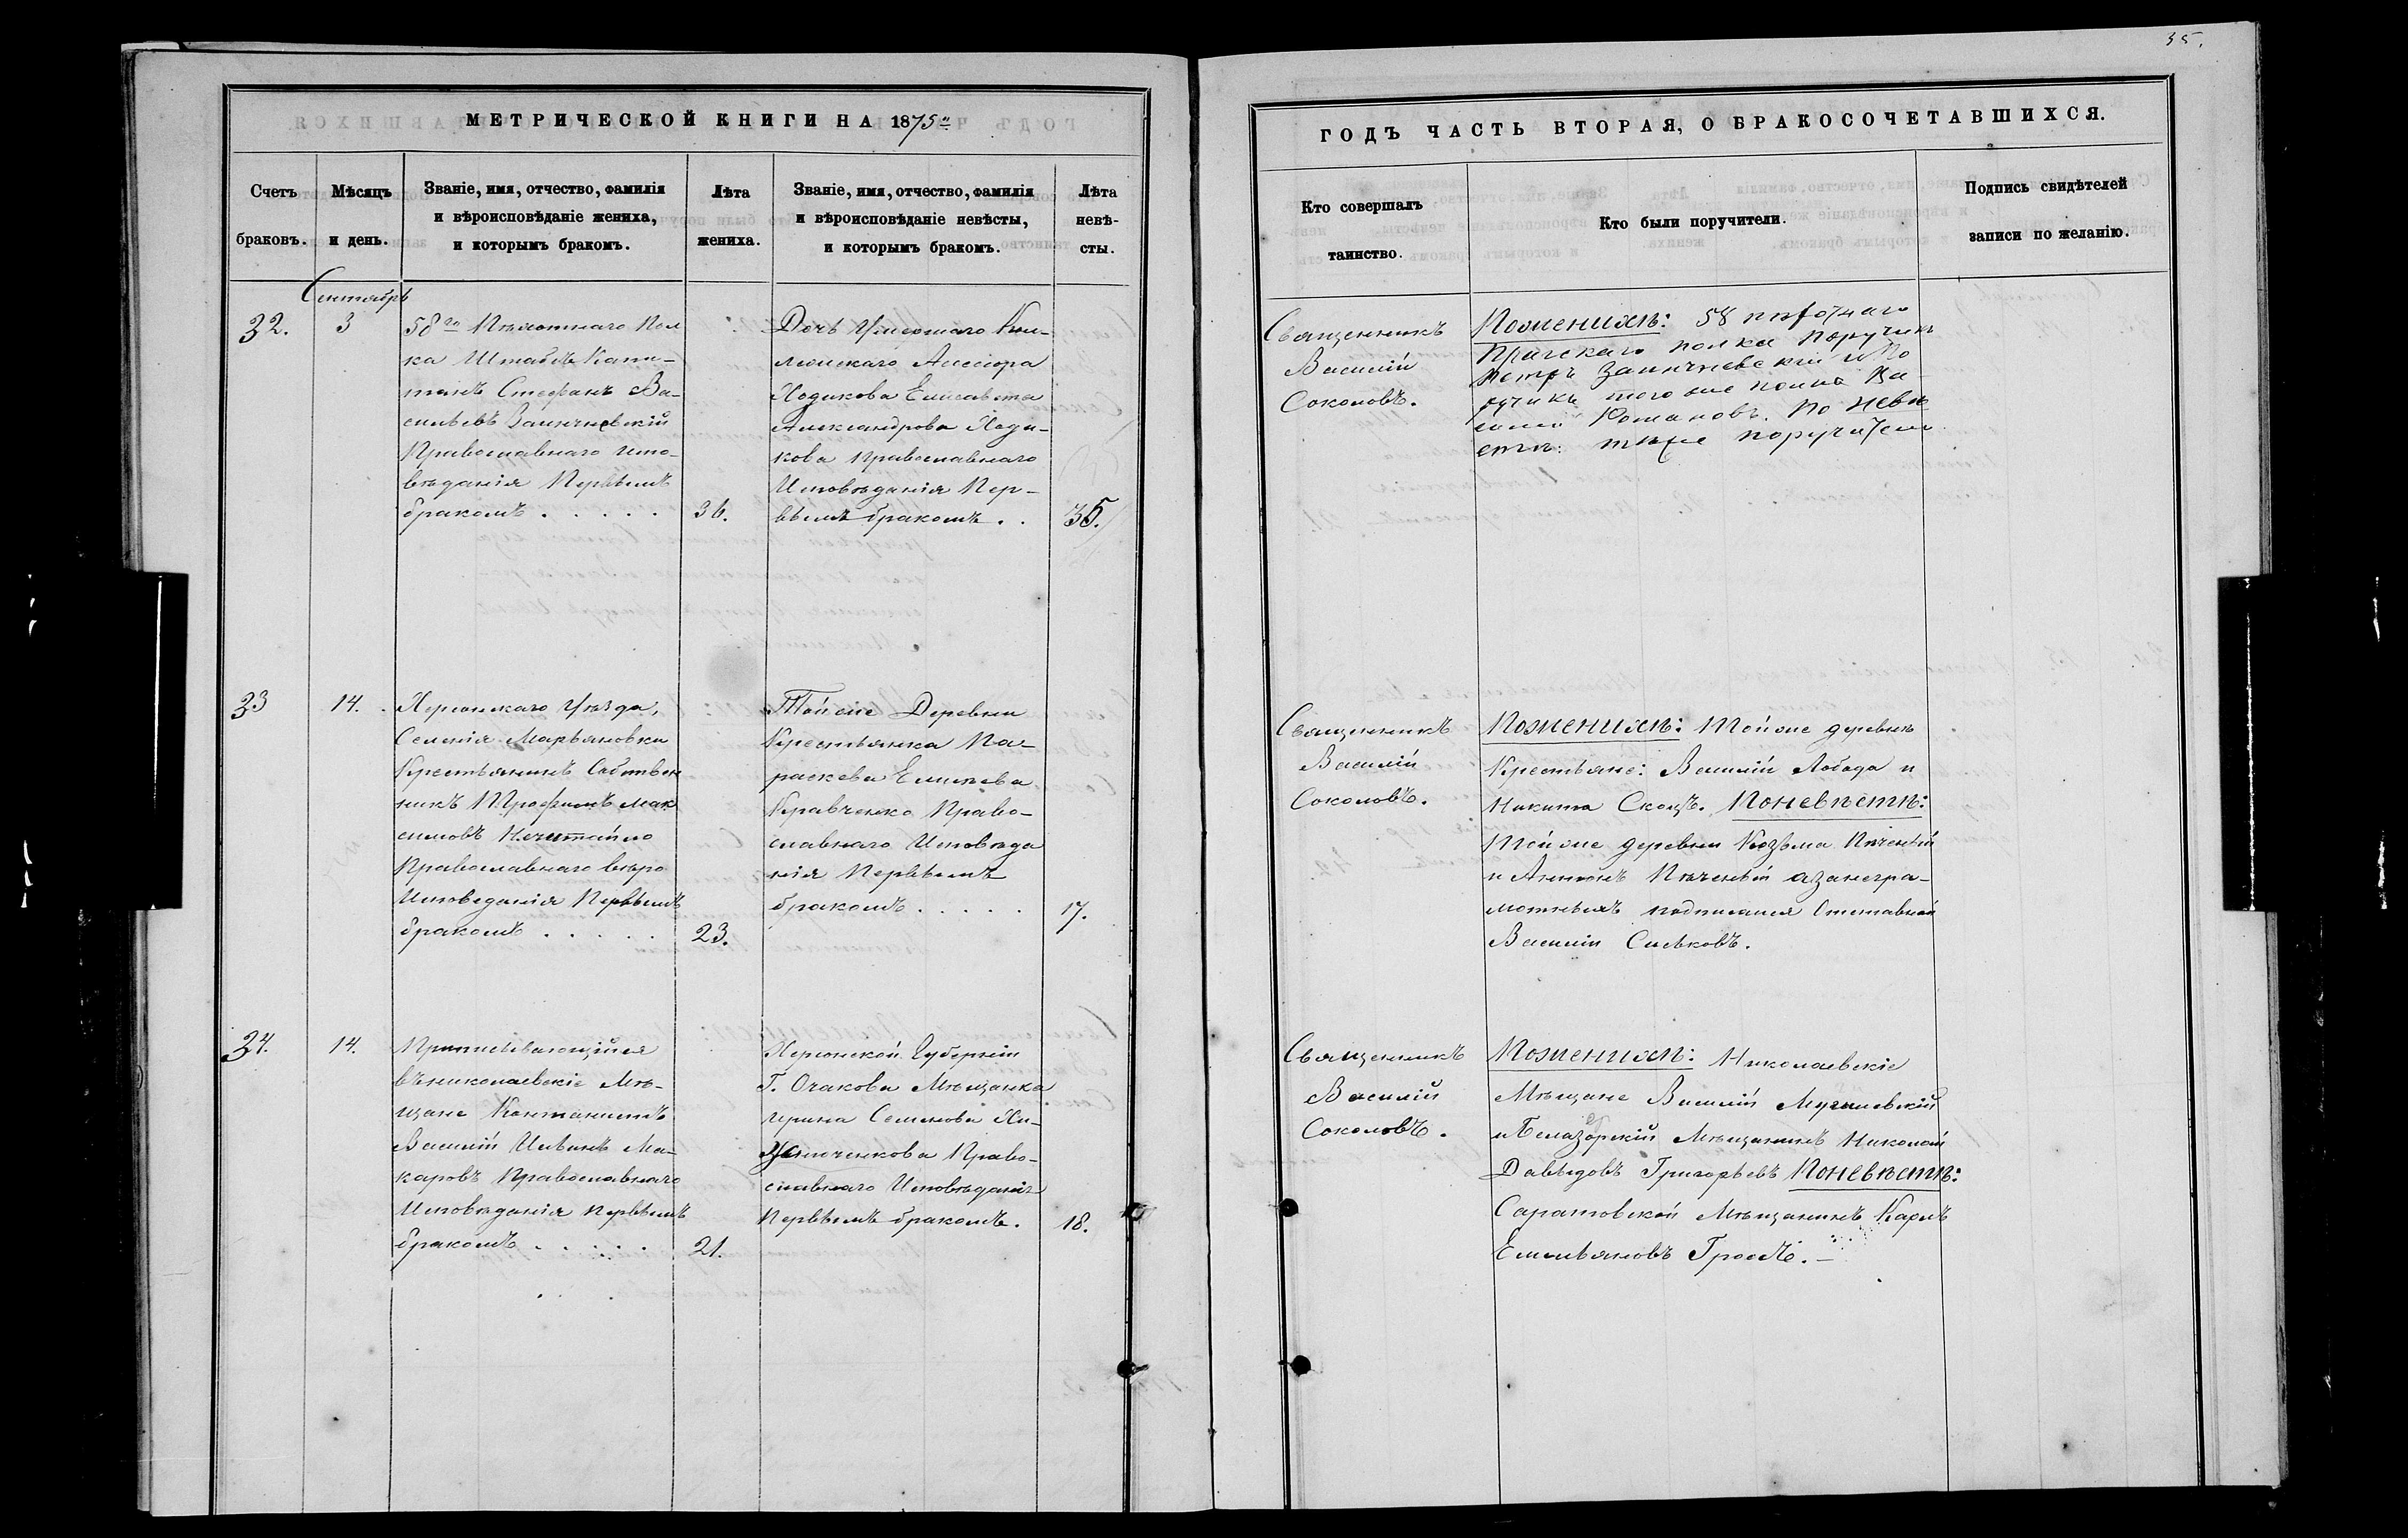 35.
МЕТРИЧЕСКОЙ КНИГИ НА 1875й
Счетъ браковъ.
Мѣсяцъ и день.
Званіе, имя, отчество, фамилія
и вѣроисповѣданіе жениха,
и которымъ бракомъ.
Лѣта жениха.
Званіе, имя, отчество, фамилія
и вѣроисповѣданіе невѣсты,
и которымъ бракомъ.
Лѣта невѣ-
сты.
ГОДЪ ЧАСТЬ ВТОРАЯ, О БРАКОСОЧЕТАВШИХСЯ.
Кто совершалъ
таинство.
Кто были поручители.
Подпись свидѣтелей
записи по желанію.
Сентябрь
32.
3
58го Пѣхотнаго Пол
ка Штабсъ Капи-
танъ Стефанъ Ва-
сильевъ Заинчневскій
Православнаго Испо-
вѣданія Первымъ
бракомъ . . . . .
36.
Дочь Умершаго Кол-
лежскаго Ассесора
Ходикова Елисавета
Александрова Ходи-
кова Православнаго
Исповѣданія Пер-
вымъ бракомъ . .
35.
Священникъ
Василій
Соколовъ.
Поженихѣ: 58 пѣхотнаго
Пражскаго полка Поручикъ
Петръ Заинчневскій и По
ручикъ того же полка Ва
силій Романовъ. По невѣ
стѣ: тѣже поручители
33
14.
Херсонскаго Уѣзда,
Селенія Марьяновки
Крестьянинъ Собствен
никъ Трофимъ Мак
симовъ Нечитайло
Православнаго вѣро
Исповеданія Первымъ
бракомъ . . . . .
23.
Той же Деревни
Крестьянка Па-
раскева Елисѣева
Кравченко Право-
славнаго Исповѣда
нія Первымъ
бракомъ . . . . .
17.
Священникъ
Василій
Соколовъ.
Поженихѣ: Той же деревнѣ
Крестьяне: Василій Лобода и
Никита Скоцъ. Поневѣстѣ:
Той же деревни Козьма Пѣченый
и Антонъ Пѣченый азанегра-
мотныхъ подписался Отставной
Василій Сильковъ.
34.
14.
Приписывающійся
въ николаевскіе Мѣ-
щане Кантонистъ
Василій Ильинъ Ма-
каровъ Православнаго
Исповѣданія первымъ
бракомъ . . . . .
21.
Херсонской Губерніи
Г. Очакова Мѣщанка
Ирина Семенова
Право-
славнаго Исповѣданія
Первымъ бракомъ.
18.
Священникъ
Василій
Соколовъ.
Поженихѣ: Николаевскіе
Мѣщане Василій
Мѣщанинъ Николай
Давыдовъ Григорьевъ Поневѣстѣ:
Саратовской Мѣщанинъ Карлъ
Емельяновъ Гроссъ.